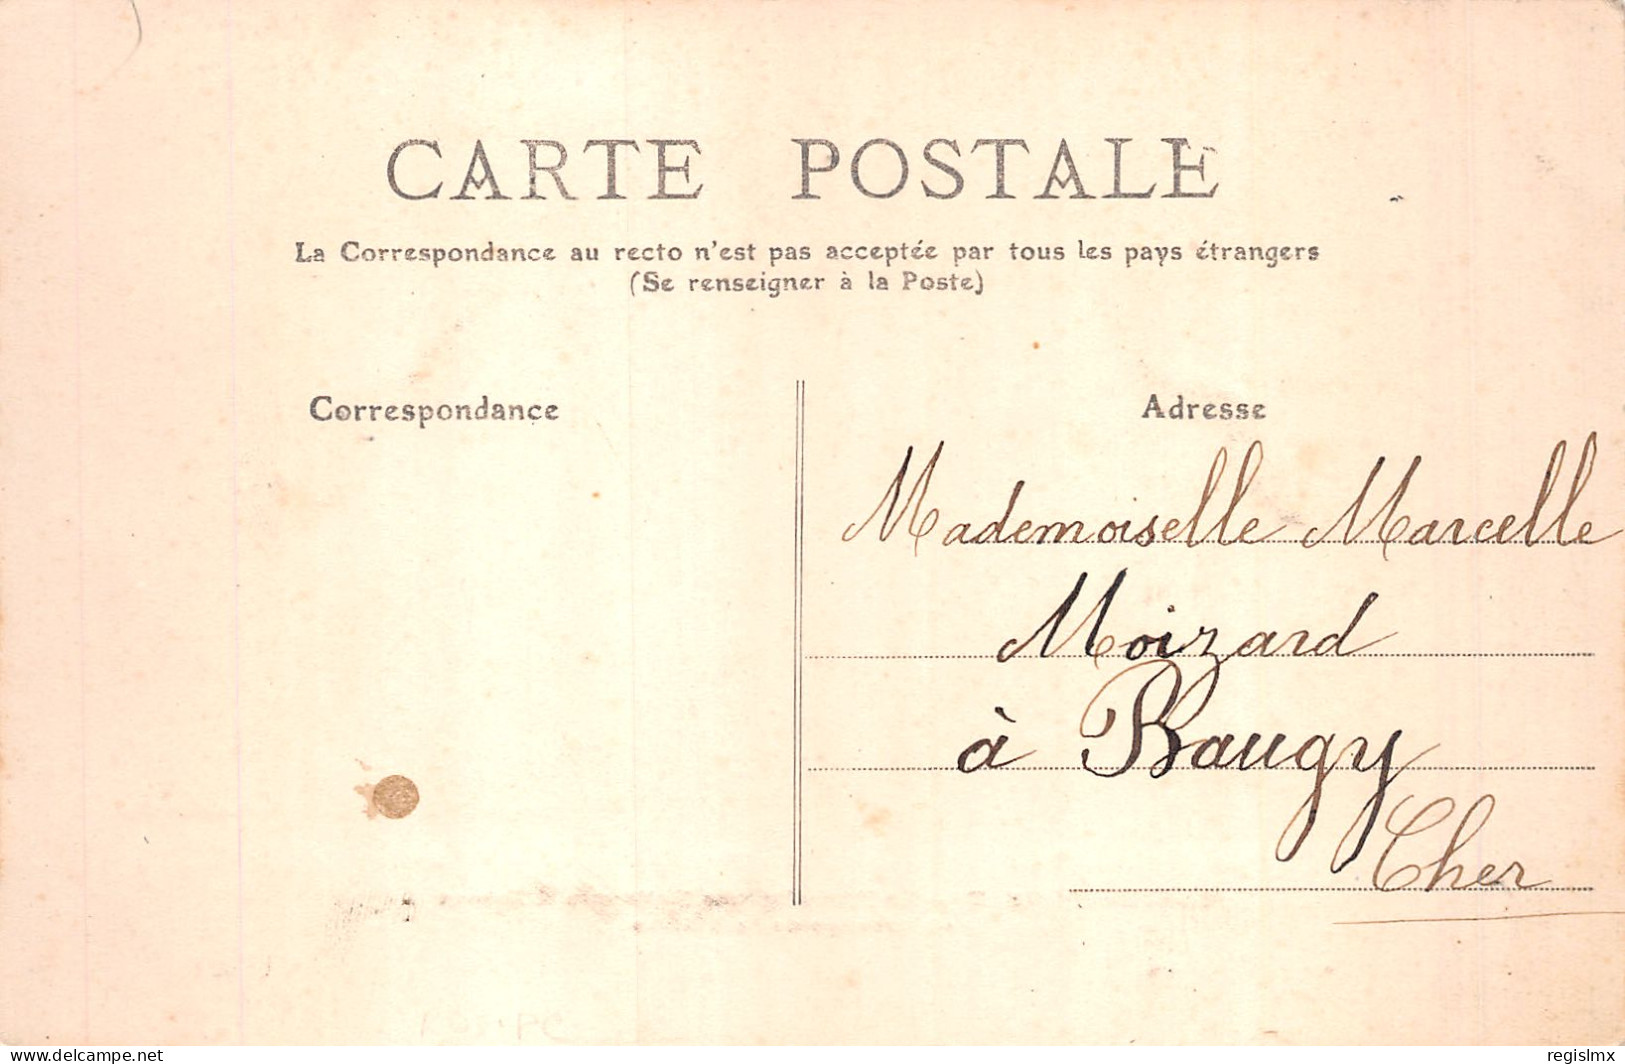 CARTE POSTALE
La Correspondance au recto n'est pas acceptée par tous les pays étrangers
(Se renseigner à la Poste)
Correspondance
Adresse
Mademoiselle Marcelle
Moizard
à Baugy
Cher
www.delcampe.net
regislmx